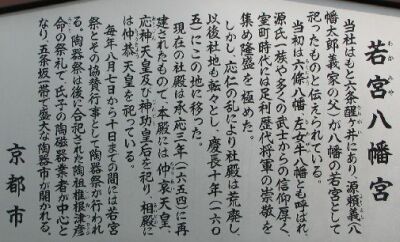 若宮八幡宮
わかみやはちまんぐう
当社はもと六条醒ヶ井にあり、源頼義(八
幡太郎義家の父)が八幡の若宮として
祀ったものと伝えられている。
当初は六條八幡、左女牛八幡とも呼ばれ
源氏一族や多くの武士からの信仰厚く、
室町時代には足利歴代将軍の崇敬を
集め隆盛を極めた。
しかし、応仁の乱により社殿は荒廃し、
以後社地も転々とし、慶長十年(一六〇
五)にこの地に移った。
現在の社殿は承応三年(一六五四)に再
建されたもので、本殿には仲哀天皇、
応神天皇及び神功皇后を祀り、相殿に
は仲恭天皇を祀っている。
毎年八月七日から十日までの間には若宮
祭とその協賛行事として陶器祭が行われ
る。陶器祭は後に合祀された陶祖椎根津彦
命の祭礼で、氏子の陶磁器業者が中心と
なり、五条坂一帯で盛大な陶器市が開かれる。
京都市